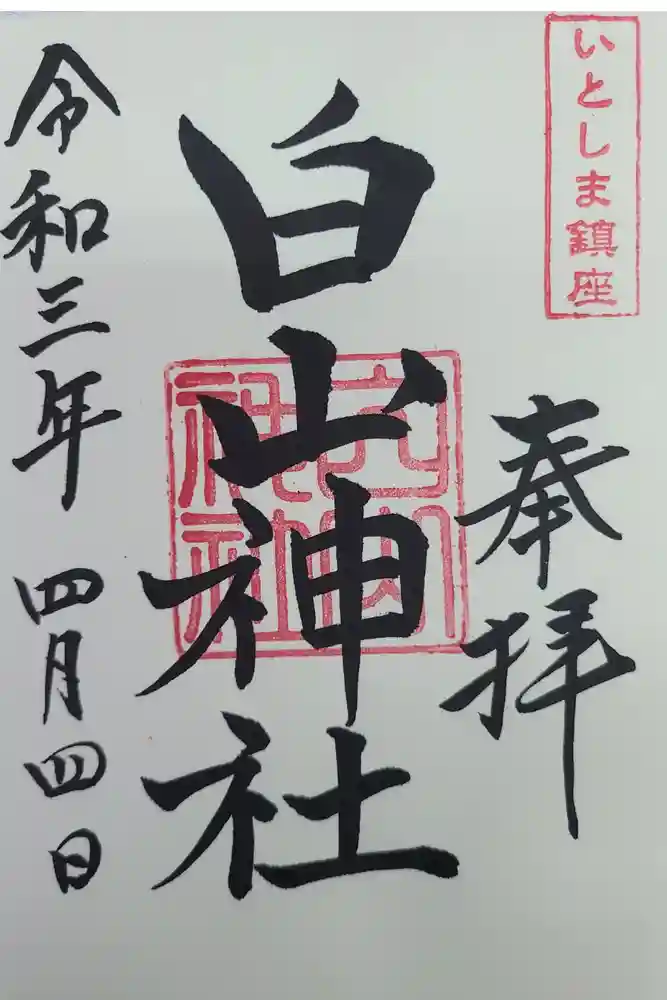 いとしま鎮座
奉拝
白山神社
白山神社
令和三年 四月四日